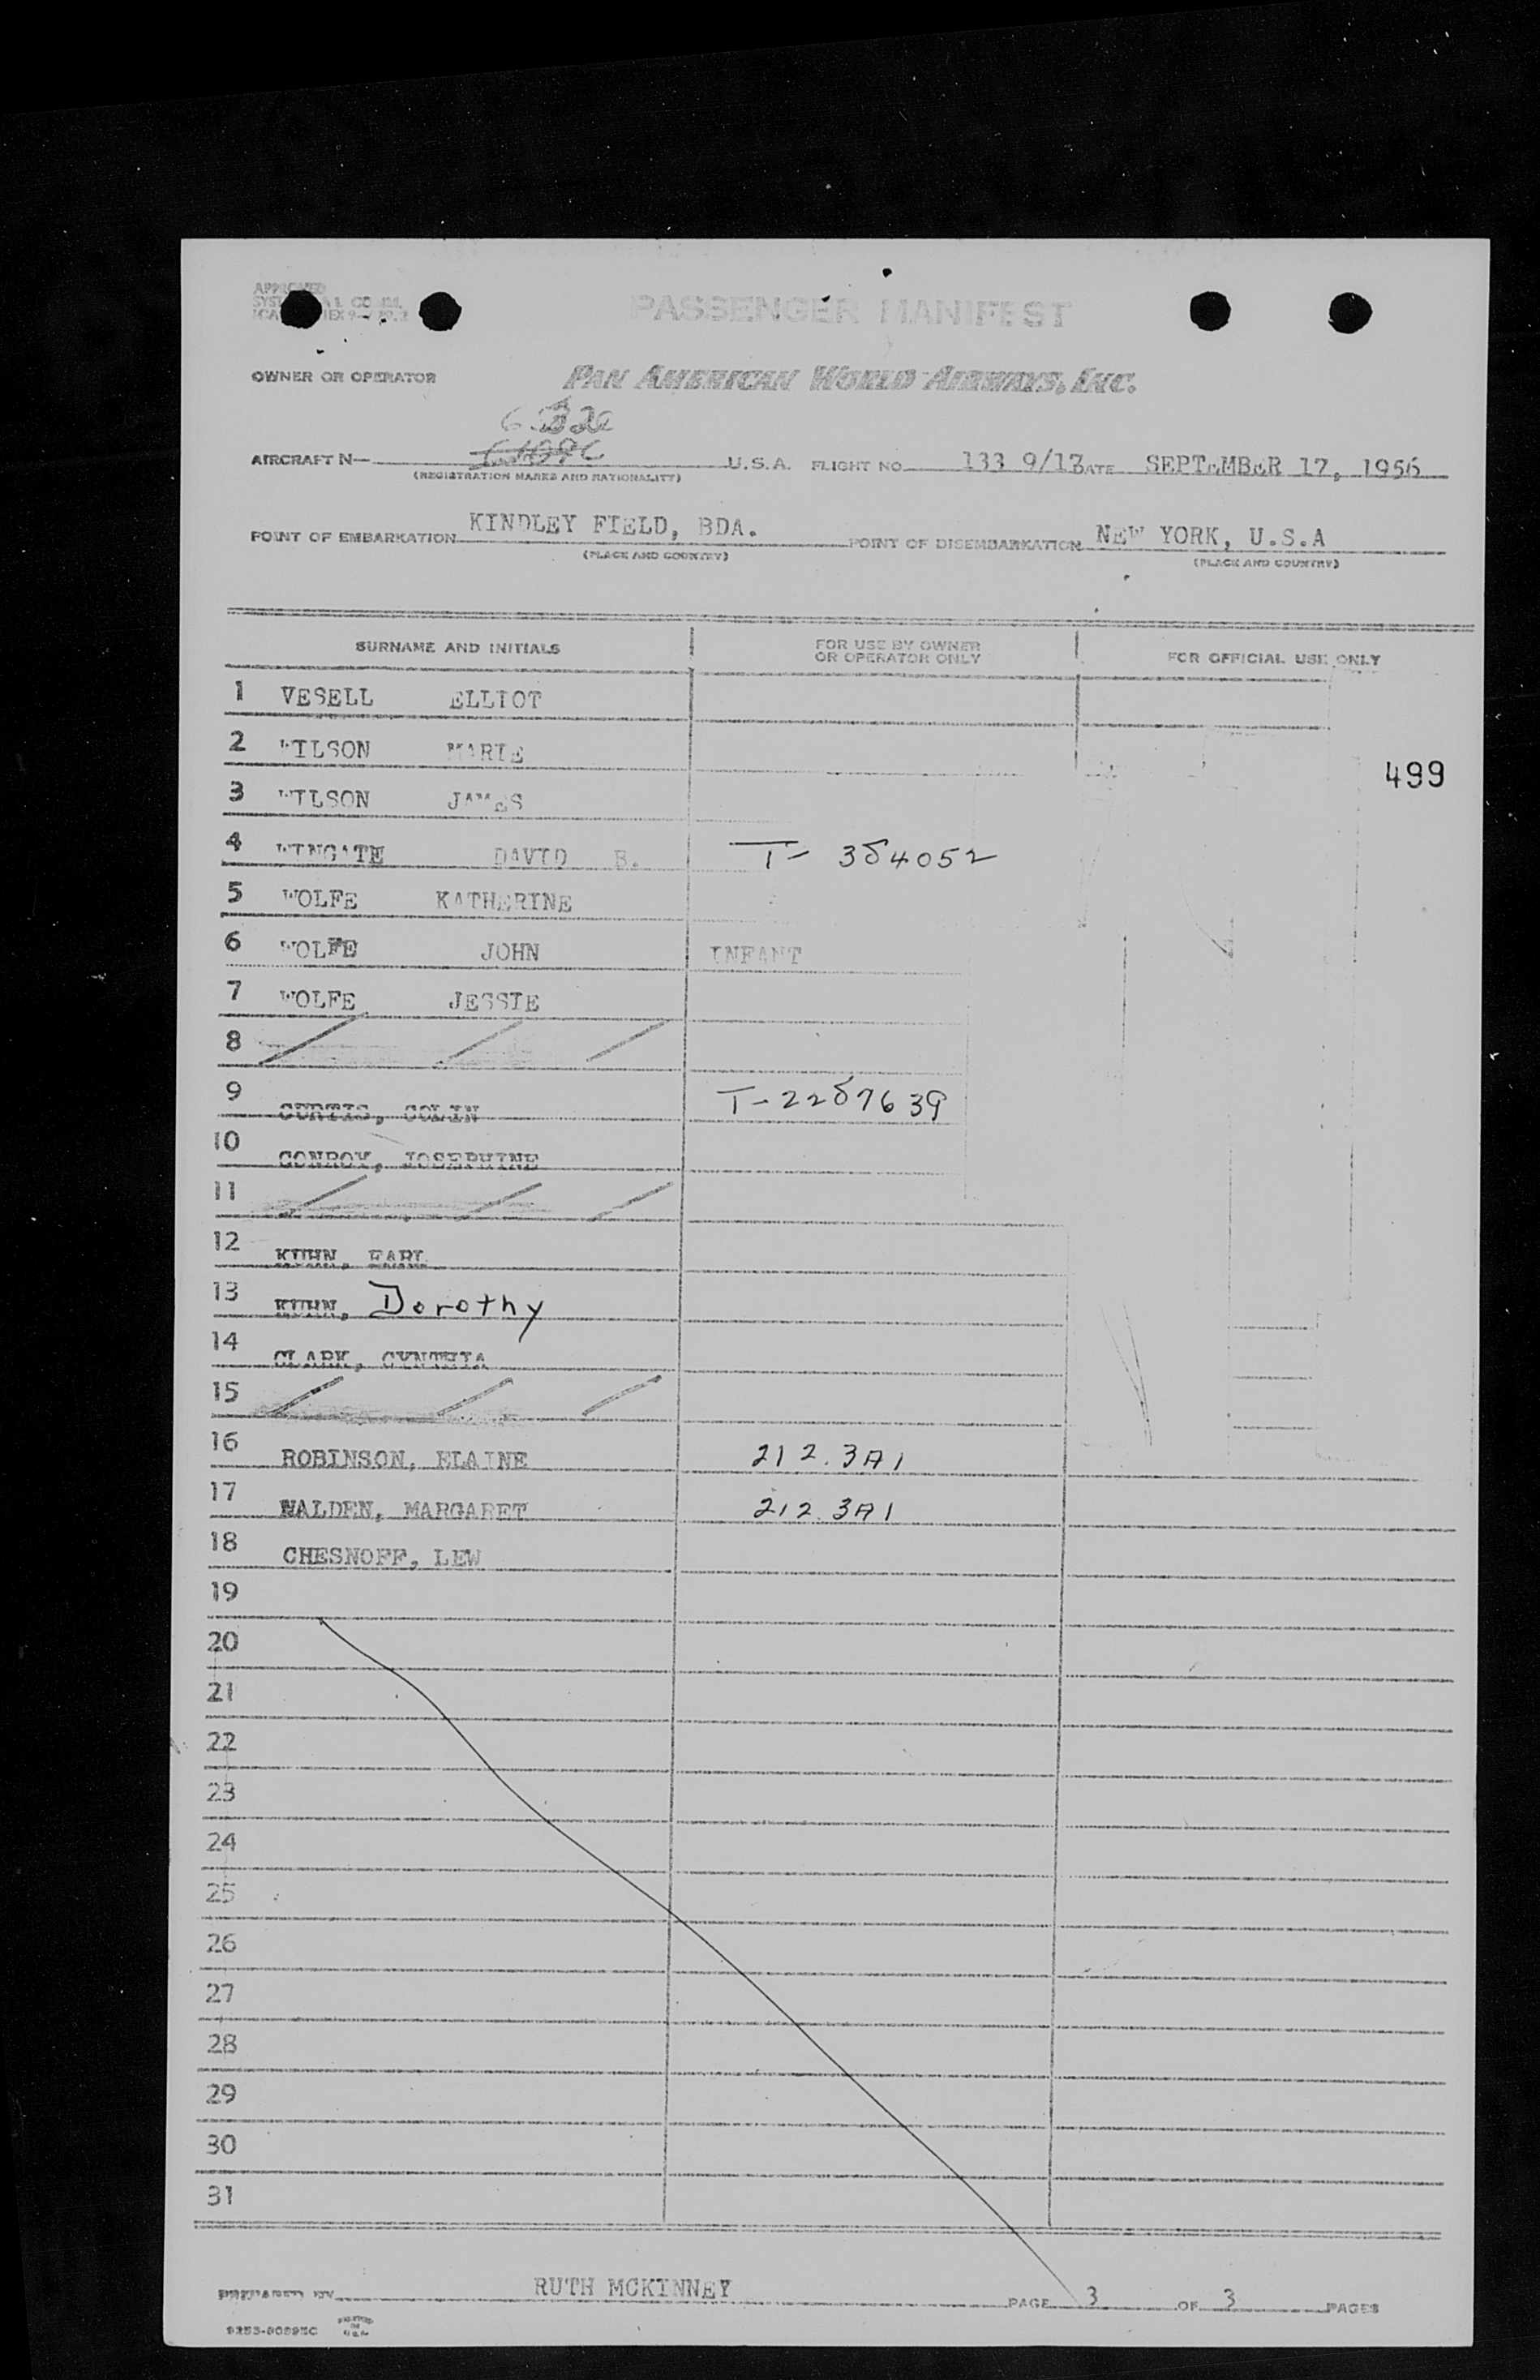 APPROVED
PASSENGER MANIFEST
OWNER OR OPERATOR PAN AMERICAN WORLD AIRWAYS, INC.
AIRCRAFT N— U.S.A. FLIGHT NO. 133 9/17 DATE SEPTEMBER 17, 1956
(REGISTRATION MARKS AND NATIONALITY)
POINT OF EMBARKATION KINDLEY FIELD, BDA. POINT OF DISEMBARKATION NEW YORK, U.S.A
(PLACE AND COUNTRY) (PLACE AND COUNTRY)
SURNAME AND INITIALS FOR USE BY OWNER OR OPERATOR ONLY FOR OFFICIAL USE ONLY
1 VESELL ELLIOT
2 WILSON MARIE
499
3 WILSON JAMES
4 WINGATE DAVID B. T- 384052
5 WOLFE KATHERINE
6 WOLFE JOHN INFANT
7 WOLFE JESSIE
8 / / /
9 CURTIS, COLIN T-2287639
10 CONROY, JOSEPHINE
11 / / /
12 KUHN, EARL
13 KUHN, Dorothy
14 CLARK, CYNTHIA
15 / / /
16 ROBINSON, ELAINE 212.3A1
17 WALDEN, MARGARET 212.3A1
18 CHESNOFF, LEW
19
20
21
22
23
24
25
26
27
28
29
30
31
PREPARED BY RUTH MCKINNEY PAGE 3 OF 3 PAGES